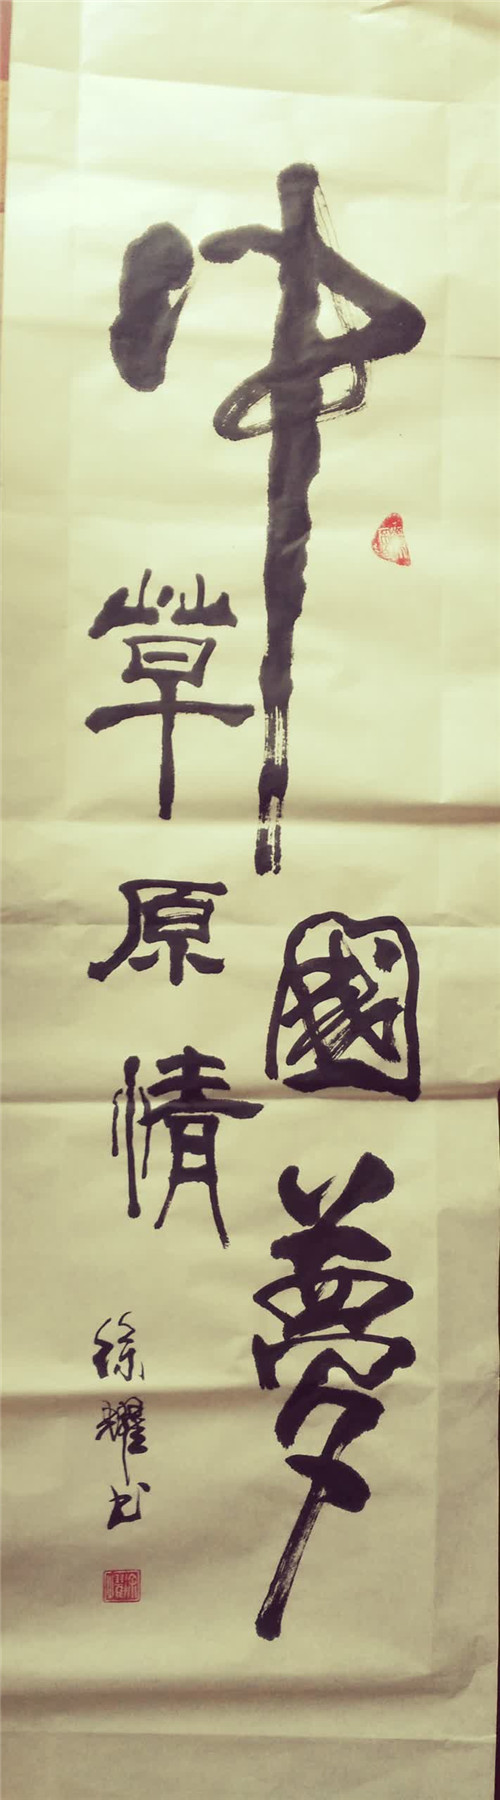 中國夢
草原情
徐耀书